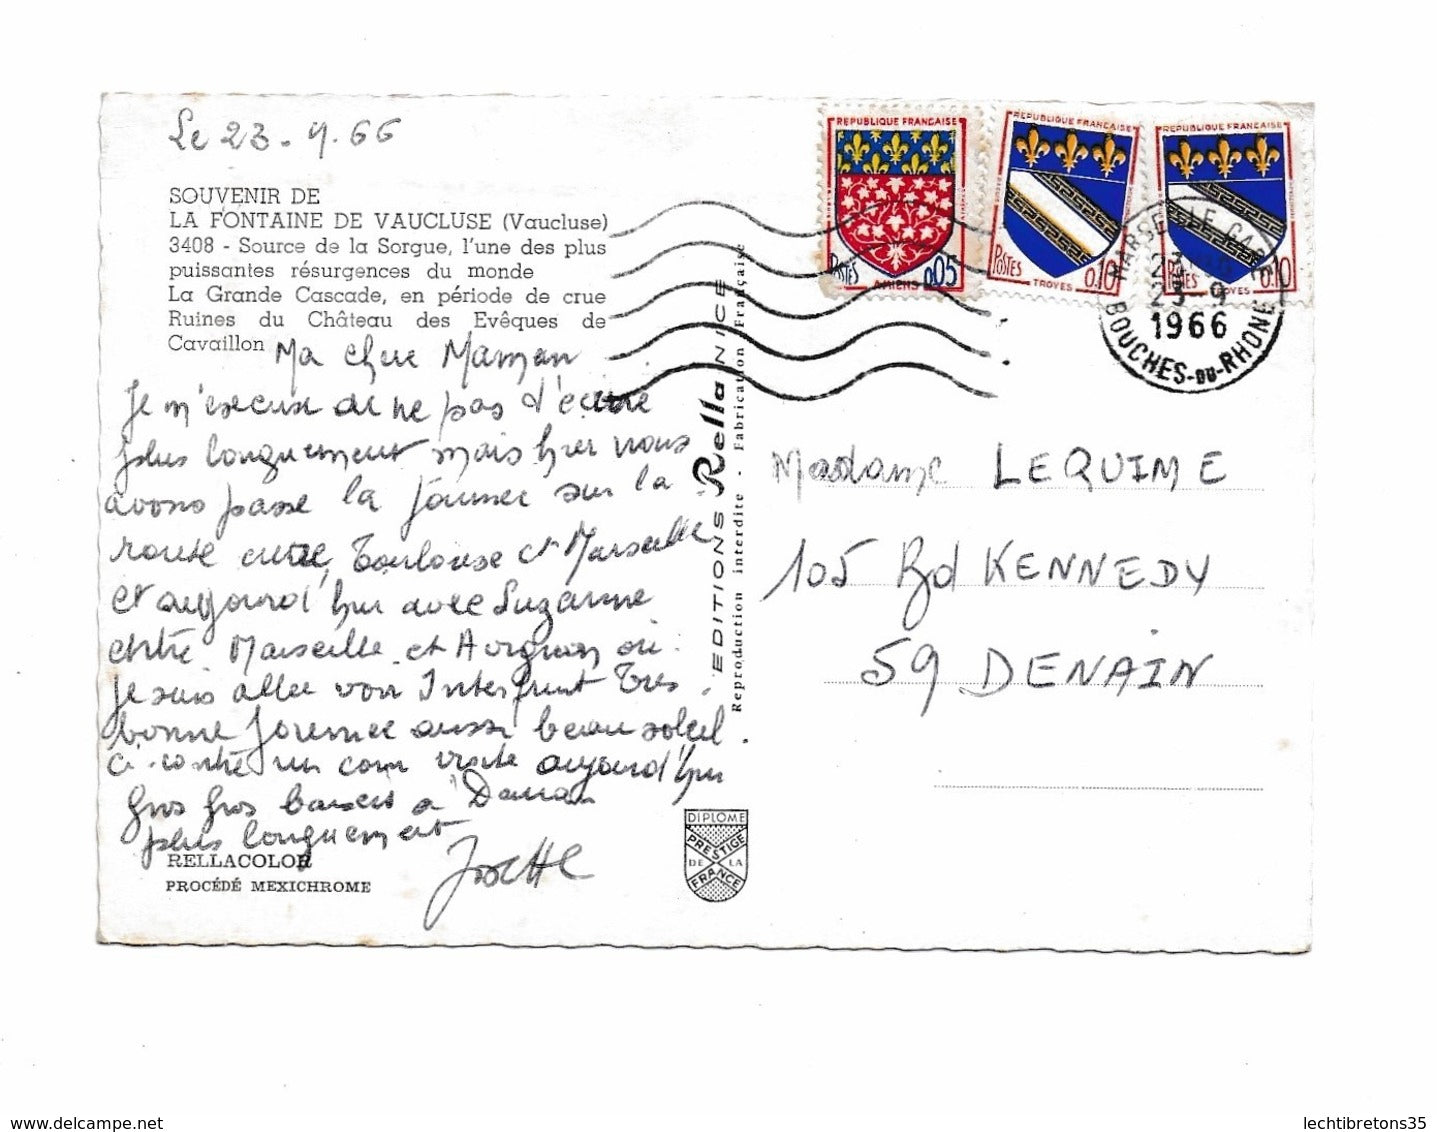 Le 23-9.66
SOUVENIR DE
LA FONTAINE DE VAUCLUSE (Vaucluse)
3408 - Source de la Sorgue, l'une des plus
puissantes résurgences du monde
La Grande Cascade, en période de crue
Ruines du Château des Evêques de
Cavaillon
Ma chere Maman
Je m'excuse de ne pas t'écrire
plus longuement mais hier nous
avons passe la journee sur la
route entre Toulouse et Marseille
et aujourd'hui avec Suzanne
entre Marseille et Avignon où
je suis allee voir Très
bonne journee aussi beau soleil
ci-contre un coin visité aujourd'hui
gros gros baisers à Demain
plus longuement
Josette
RELLACOLOR
PROCÉDÉ MEXICHROME
EDITIONS Rella NICE
Reproduction interdite - Fabrication Française
DIPLOME
PRESTIGE
DE LA
FRANCE
REPUBLIQUE FRANÇAISE
POSTES 0,05
AMIENS
REPUBLIQUE FRANÇAISE
POSTES 0.10
TROYES
REPUBLIQUE FRANÇAISE
POSTES 0.10
TROYES
MARSEILLE GARE
23-9
1966
BOUCHES-DU-RHONE
Madame LEQUIME
105 Bd KENNEDY
59 DENAIN
www.delcampe.net
lechtibretons35